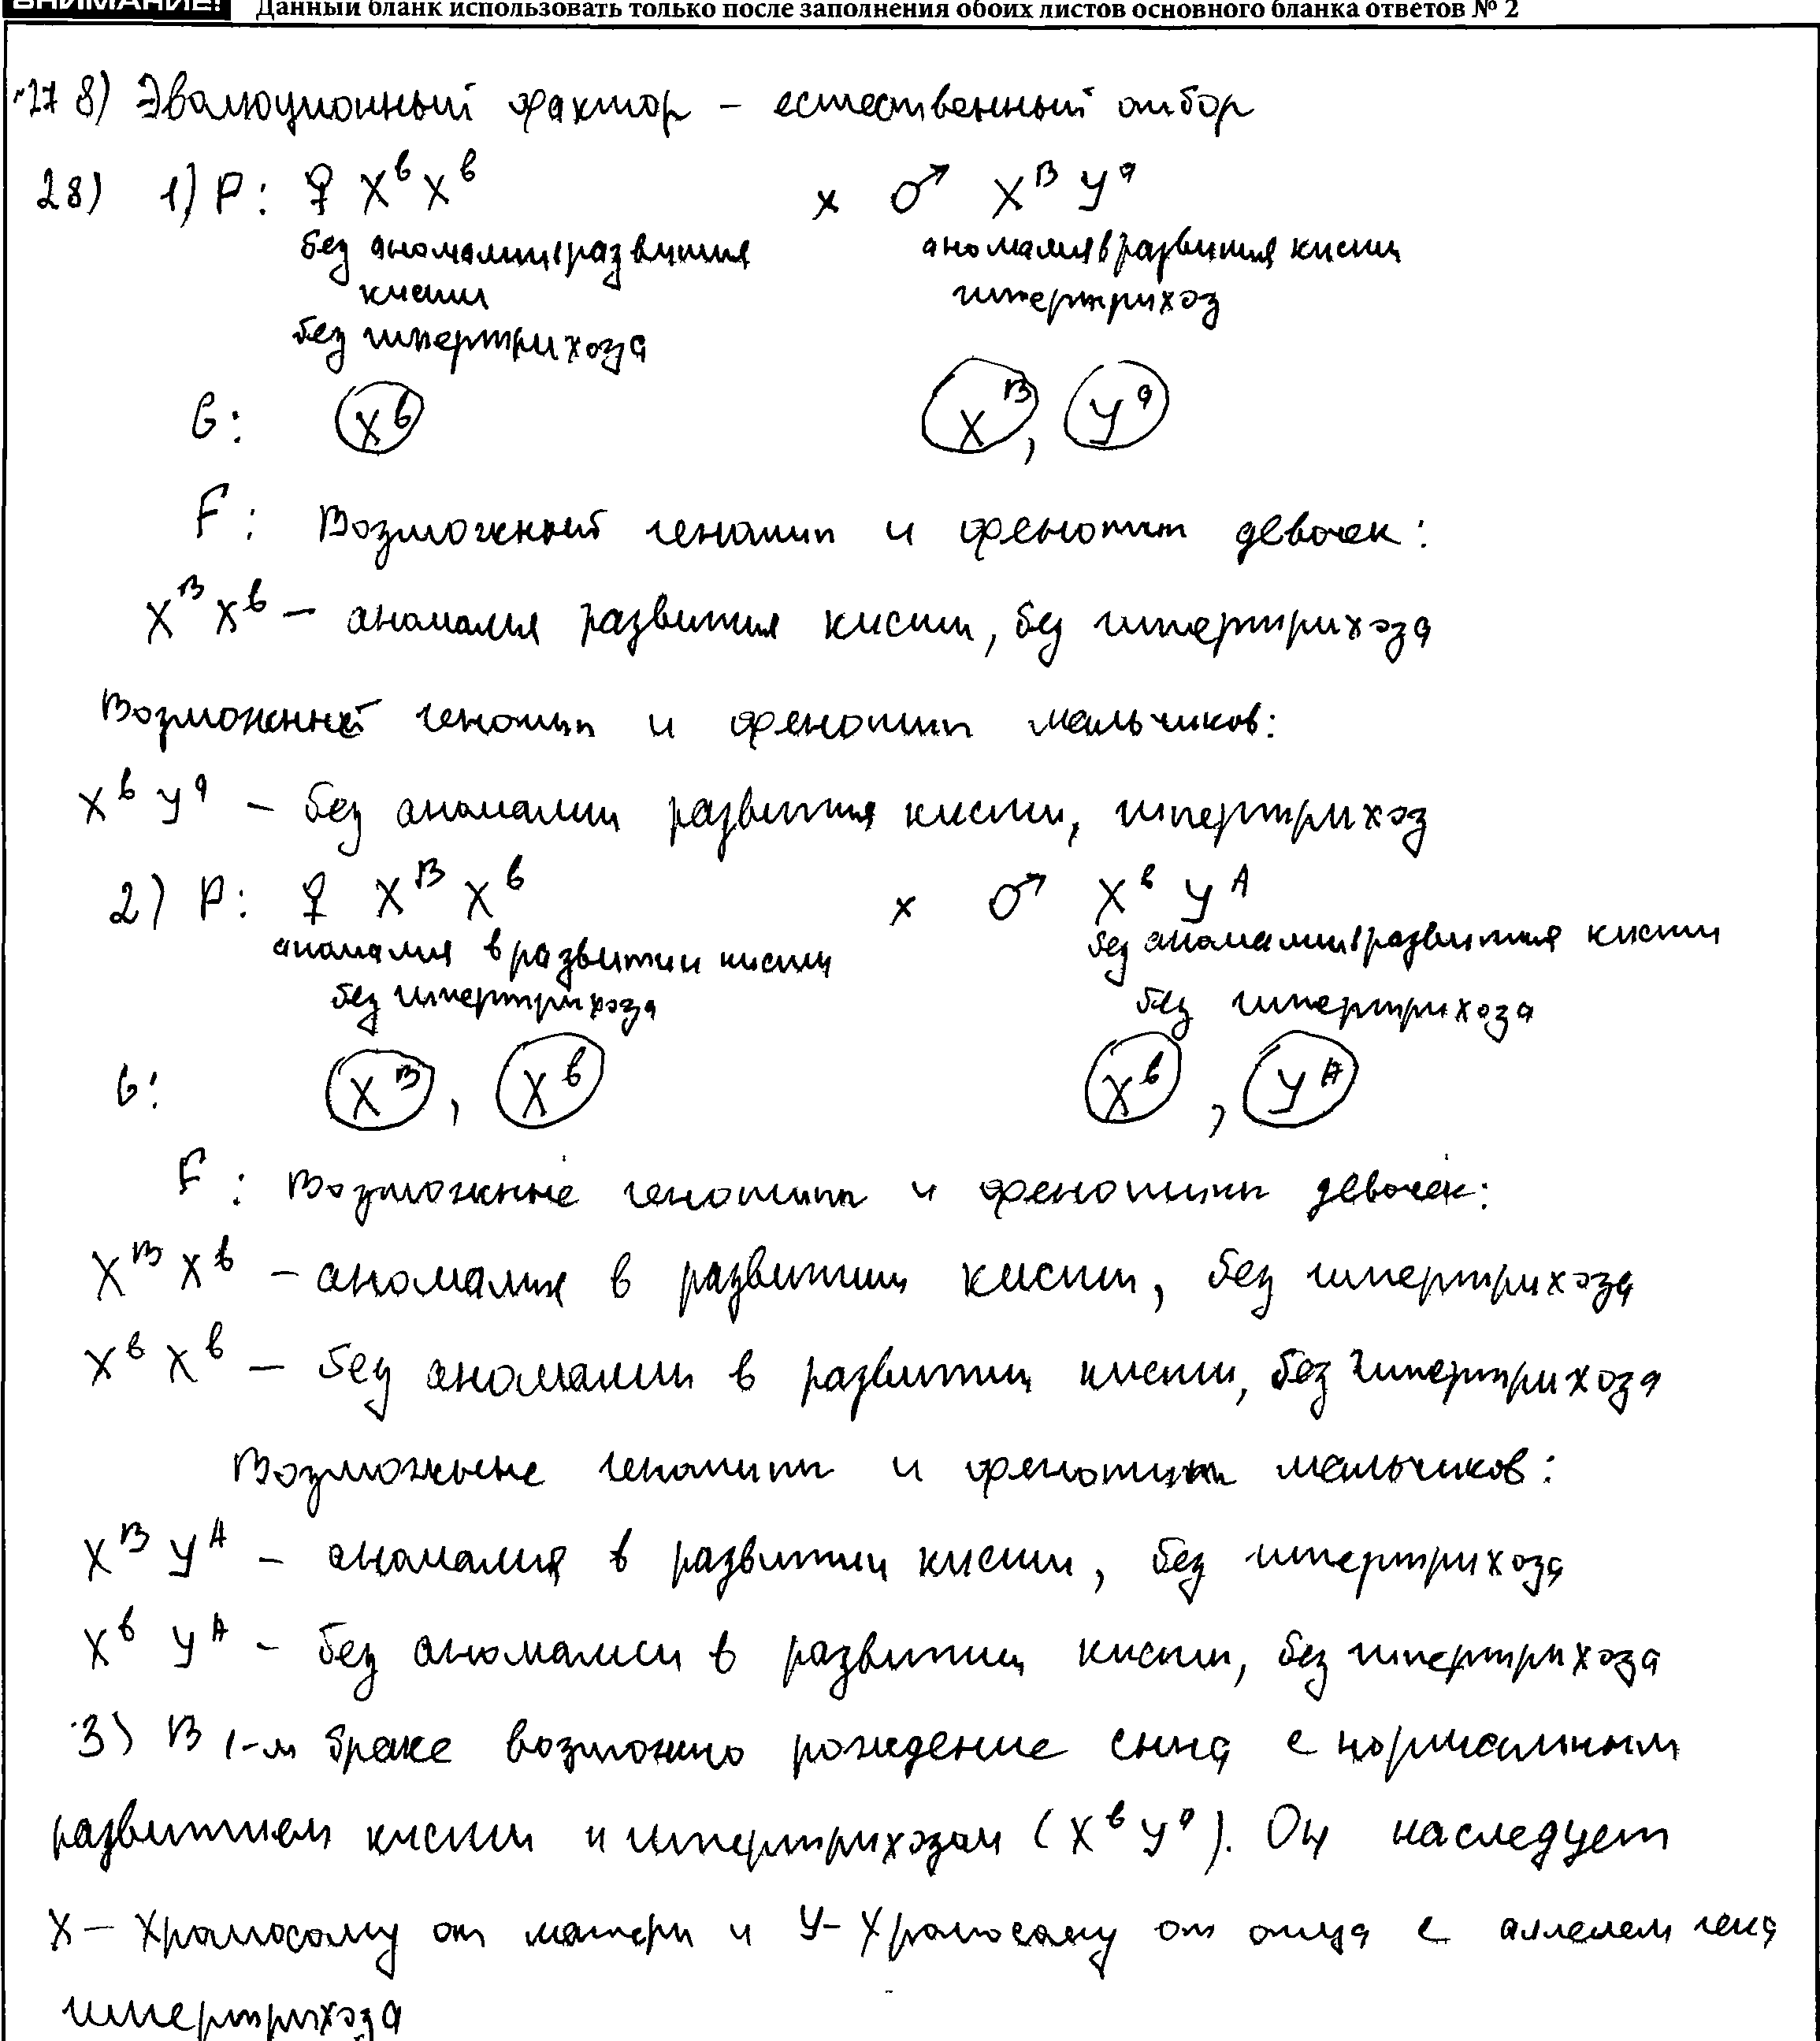 ВНИМАНИЕ! Данный бланк использовать только после заполнения обоих листов основного бланка ответов № 2
27 8) Эвалюционный фактор – естественный отбор
28) 1) P: ♀ X^b X^b × ♂ X^B Y^a
без аномалии в развития аномалия в развития кисти
кисти гипертрихоз
без гипертрихоза
G: X^b X^B, Y^a
F: Возможный генотип и фенотип девочек:
X^B X^b – аномалия развития кисти, без гипертрихоза
Возможный генотип и фенотип мальчиков:
X^b Y^a – без аномалии развития кисти, гипертрихоз
2) P: ♀ X^B X^b × ♂ X^b Y^A
аномалия в развитии кисти без аномалии в развития кисти
без гипертрихоза без гипертрихоза
G: X^B, X^b X^b, Y^A
F: Возможные генотипы и фенотипы девочек:
X^B X^b – аномалия в развитии кисти, без гипертрихоза
X^b X^b – без аномалии в развитии кисти, без гипертрихоза
Возможные генотипы и фенотипы мальчиков:
X^B Y^A – аномалия в развитии кисти, без гипертрихоза
X^b Y^A – без аномалии в развитии кисти, без гипертрихоза
3) В 1-м браке возможно рождение сына с нормальным
развитием кисти и гипертрихозом (X^b Y^a). Он наследует
X – хромосому от матери и Y-хромосому от отца с аллелем гена
гипертрихоза